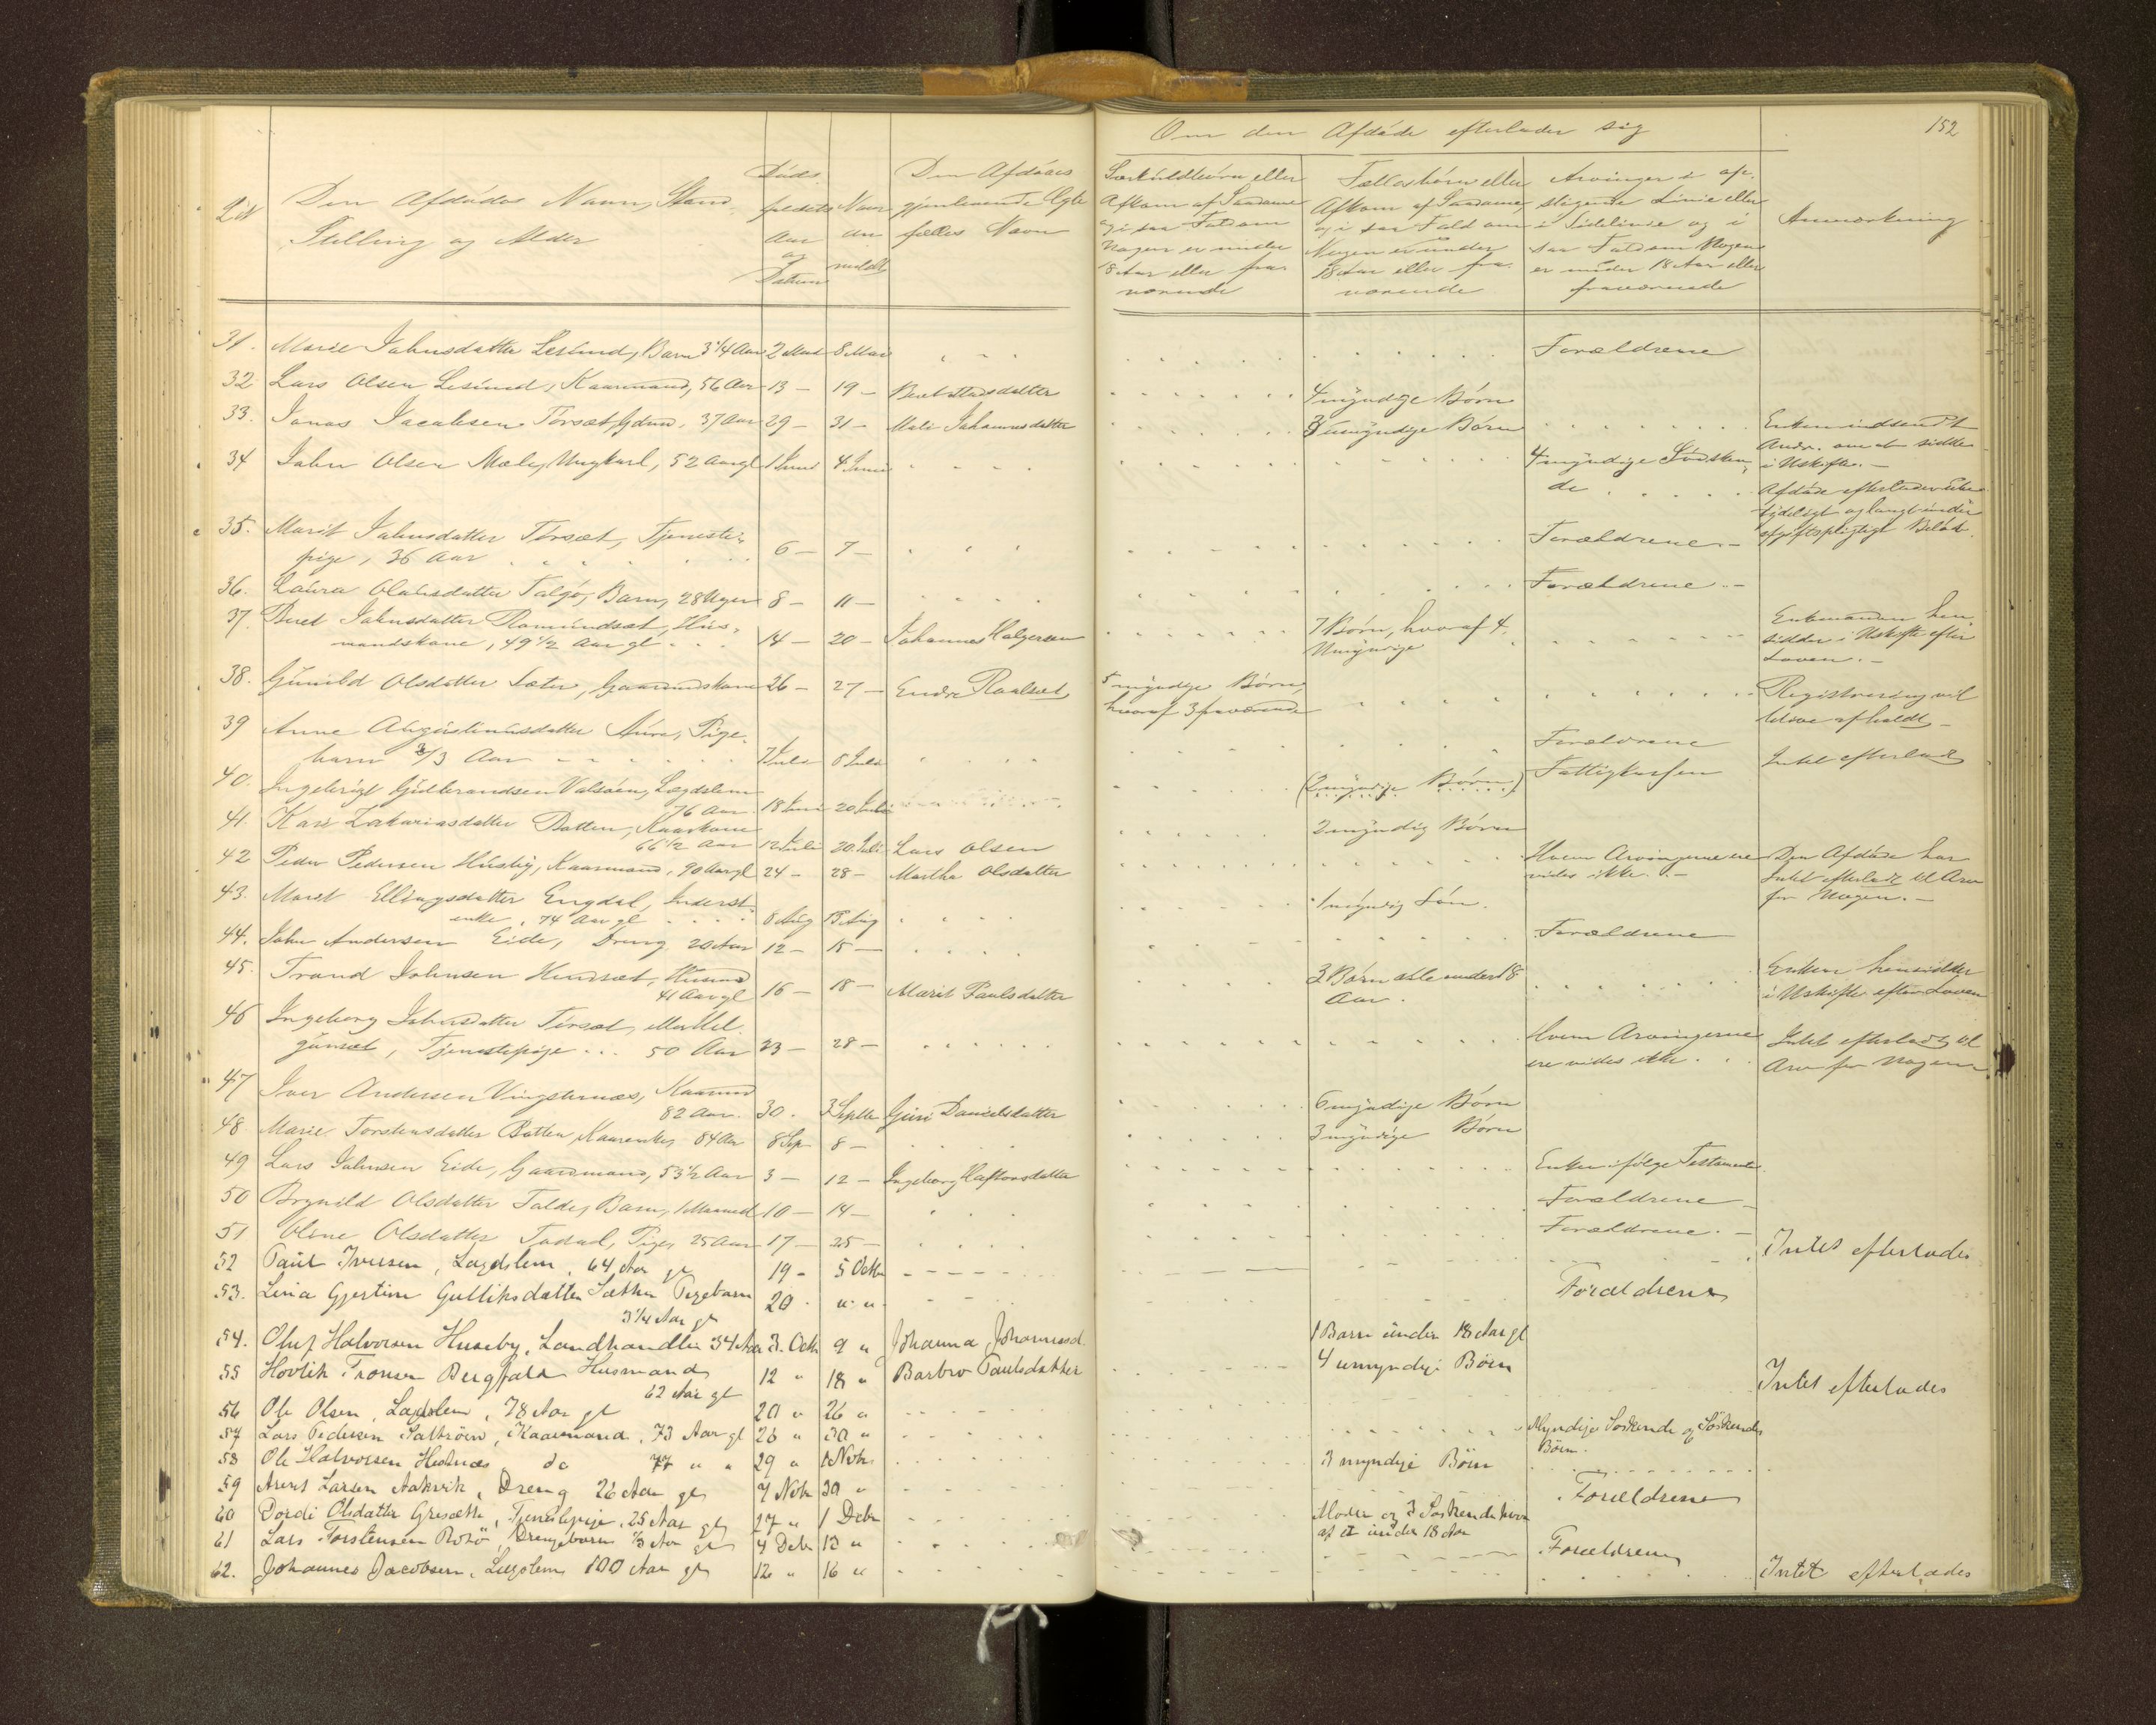 Om den Afdöde efterlader sig
152
Den Afdödes Navn, Stand
Stilling og Alder
Döds-
faldets
Aar
og
Datum
Naar
an
meldt
Den Afdödes
gjenlevende Ægte
fælles Navn
Særkuldbörn eller
Afkom af Saadanne
og i saa Fald om
Nogen er under
18 Aar eller fra
værende
Fællesbörn eller
Afkom af Saadanne,
og i saa Fald om
Nogen er under
18 Aar eller fra
værende
Arvinger i op-
stigende Linie eller
i Sidelinie og i
saa Fald om Nogen
er under 18 Aar eller
fraværende
Anmærkning
31. Marie Johnsdatter Lesund, Barn 3 1/4 Aar 2 Mai 8 Mai Forældrene
32 Lars Olsen Lesund, Kaarmand, 56 Aar 13 – 19 – 4 myndige Börn
33. Jonas Jacobsen Torsæt, Gdmd, 37 Aar 29 – 31 – Mali Johannesdatter 3 umyndige Börn
Enken indsendt
Andr. om at sidde
i Uskifte. –
34 John Olsen Mæle, Ungkarl, 52 Aar gl 1 Juni 4 Juni 4 myndige Södsken-
de
Afdöde efterlader
og langt under
afgiftspligtigt Belöb.
35. Marit Johnsdatter Torsæt, Tjeneste-
pige, 36 Aar 6 – 7 – Forældrene –
36. Laura Olausdatter Talgö, Barn, 28 Uger 8 – 11 – Forældrene –
37. Beret Johnsdatter Romundsæt, Hus-
mandskone, 49 1/2 Aar gl 14 – 20 – Johannes Halgersen 7 Börn, hvoraf 4
Umyndige
Enkemanden hen-
sidder i Uskifte efter
Loven. –
38. Gunild Olsdatter Sæter, Gaardmdskone 26 – 27 – Endre Roalset 5 myndige Börn,
hvoraf 3 fraværende
Registrering vil
blive afholdt –
39 Anne Augustinusdatter Aure, Pige-
barn 2/3 Aar 7 Juli 8 Juli Forældrene
40. Ingebrigt Gudbrandsen Valsöen, Lægdslem
76 Aar 18 Juni 20 Juli (2 myndige Börn) Fattigkassen Intet efterladt
41. Kari Zakariasdatter Botten, Kaarkone
66 1/2 Aar 12 Juli 20 Juli Lars Olsen 2 myndig Börn
42 Peder Pedersen Husby, Kaarmand, 90 Aar gl 24 – 28 – Martha Olsdatter Hvem Arvingerne ere
vides ikke. –
Den Afdöde har
Intet efterladt til Arv
for Nogen. –
43. Marit Ellingsdatter Engdal, Inderst-
enke, 74 Aar gl 8 Aug 15 Aug 1 myndig Sön.
44. John Andersen Eide, Dreng 20 Aar 12 – 15 – Forældrene
45. Trond Johnsen Hendset, Husmd
41 Aar gl 16 – 18 – Marit Paulsdatter 3 Börn alle under 18
Aar.
Enken hensidder
i Uskifte efter Loven
46 Ingeborg Johnsdatter Torsæt, eller Mel-
gunsæt, Tjenestepige . . . 50 Aar 23 – 28 – Hvem Arvingerne
ere vides ikke.
Intet efterladt til
Arv for Nogen
47 Iver Andersen Vingsternæs, Kaarmd
82 Aar. 30. 3 Septbr Guri Danielsdatter 6 myndige Börn
48 Marie Torstensdatter Botten, Kaarenke, 84 Aar 8 Sep 8 – 3 myndige Börn
49 Lars Johnsen Eide, Gaardmand, 53 1/2 Aar 3 – 12 – Ingeborg Haftorsdatter Enken ifölge Testamente
50 Brynild Olsdatter Todde, Barn, 1 Maaned 10 – 14 – Forældrene –
51 Oline Olsdatter Todal, Pige, 25 Aar 17 – 25 – Forældrene. –
52 Paul Iversen, Lægdslem, 64 Aar gl 19 – 5 Octbr Intet efterlades
53. Lina Gjertine Gulliksdatter Sæther Pigebarn
3 1/4 Aar gl 20 " " Forældrene
54. Oluf Halvorsen Huseby, Landhandler 34 Aar 3. Octb 9 " Johanna Johannesd. 1 Barn under 18 Aar gl
55 Hovlik Tronsen Bergfald Husmand
62 Aar gl 12 " 18 " Barbro Paulsdatter 4 umyndige Börn Intet efterlades
56 Ole Olsen, Lægdslem, 78 Aar gl 20 " 26 "
57 Lars Pedersen Saltröen, Kaarmand, 73 Aar gl 26 " 30 " Myndige Söskende og Söskendes
Börn.
58 Ole Halvorsen Holmæs do 77 " " 29 " 1 Novbr. 3 myndige Börn
59 Arent Larsen Aakvik, Dreng 26 Aar gl 7 Novbr 30 " Forældrene
60 Dordi Olsdatter Gresæth, Tjenestepige, 25 Aar gl 27 " 1 Debr Moder og 3 Söskende hvor-
af et under 18 Aar
61 Lars Torstensen Rotö, Drengebarn 1/3 Aar gl 4 Debr 13 " Forældrene
62. Johannes Jacobsen, Lægslem 100 Aar gl 12 " 16 " Intet efterlades